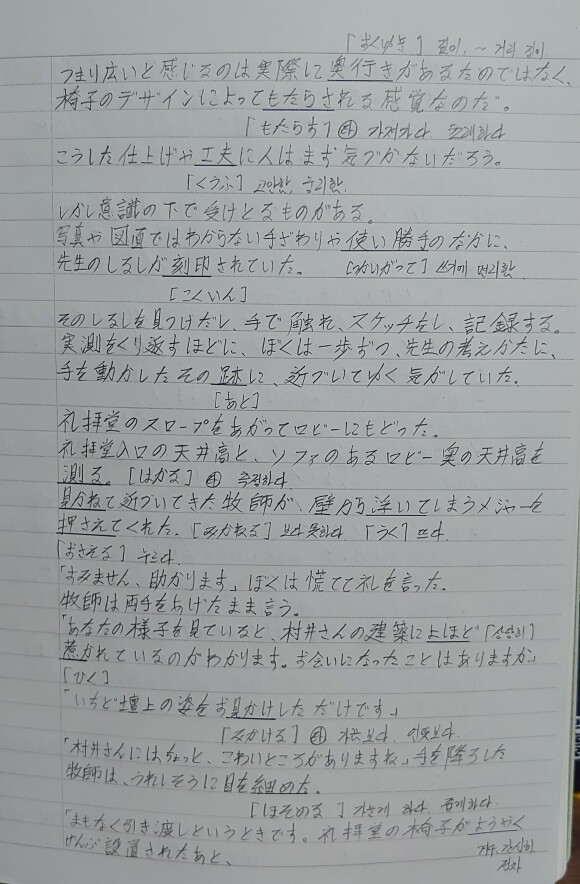 「おくゆき」 깊이, ~ 거리 길이
つまり広いと感じるのは実際に奥行きがあるためのではなく、
椅子のデザインによってもたらされる感覚なのだ。
「もたらす」 他 가져가다 초래하다
こうした仕上げや工夫に人はまず気づかないだろう。
「くうふ」 고안함, 궁리함.
しかし意識の下で受けとるものがある。
写真や図面ではわからない手ざわりや使い勝手のなかに、
先生のしるしが刻印されていた。 [つかいがって] 쓰기에 편리함.
[こくいん]
そのしるしを見つけだし、手で触れ、スケッチをし、記録する。
実測をくり返すほどに、ぼくは一歩ずつ、先生の考えかたに、
手を動かしたその跡に、近づいてゆく気がしていた。
[あと]
礼拝堂のスロープをあがってロビーにもどった。
礼拝堂入口の天井高と、ソファのあるロビー奥の天井高を
測る。 [はかる] 他 측정하다.
見かねて近づいてきた牧師が、壁から浮いてしまうメジャーを
押さえてくれた. [みかねる] 보다못하다 「うく」 뜨다.
「おさえる」 누르다.
「すみません、助かります」ぼくは慌てて礼を言った。
牧師は両手をあげたまま言う。
「あなたの様子を見ていると、村井さんの建築によほど「상당히」
惹かれているのがわかります。お会いになったことはありますか」
「ひく」
「いちど壇上の姿をお見かけしただけです」
「みかける」 他 가끔 보다. 언뜻보다.
「村井さんにはちょっと、こわいところがありますね」手を降ろした
牧師は、うれしそうに目を細めた.
「ほそめる」 가늘게 하다. 좁게하다.
「まもなく引き渡しというときです。礼拝堂の椅子がようやく
ぜんぶ設置されたあと、 겨우, 간신히,
점차